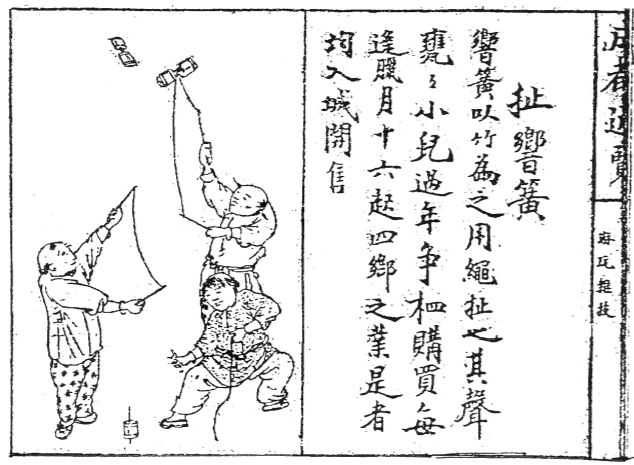 成都通覽
雜技
扯響簧
響簧以竹為之用繩扯也其聲
甕々小兒過年爭相購買每
逢臘月十六起四鄉之業是者
均入城開售